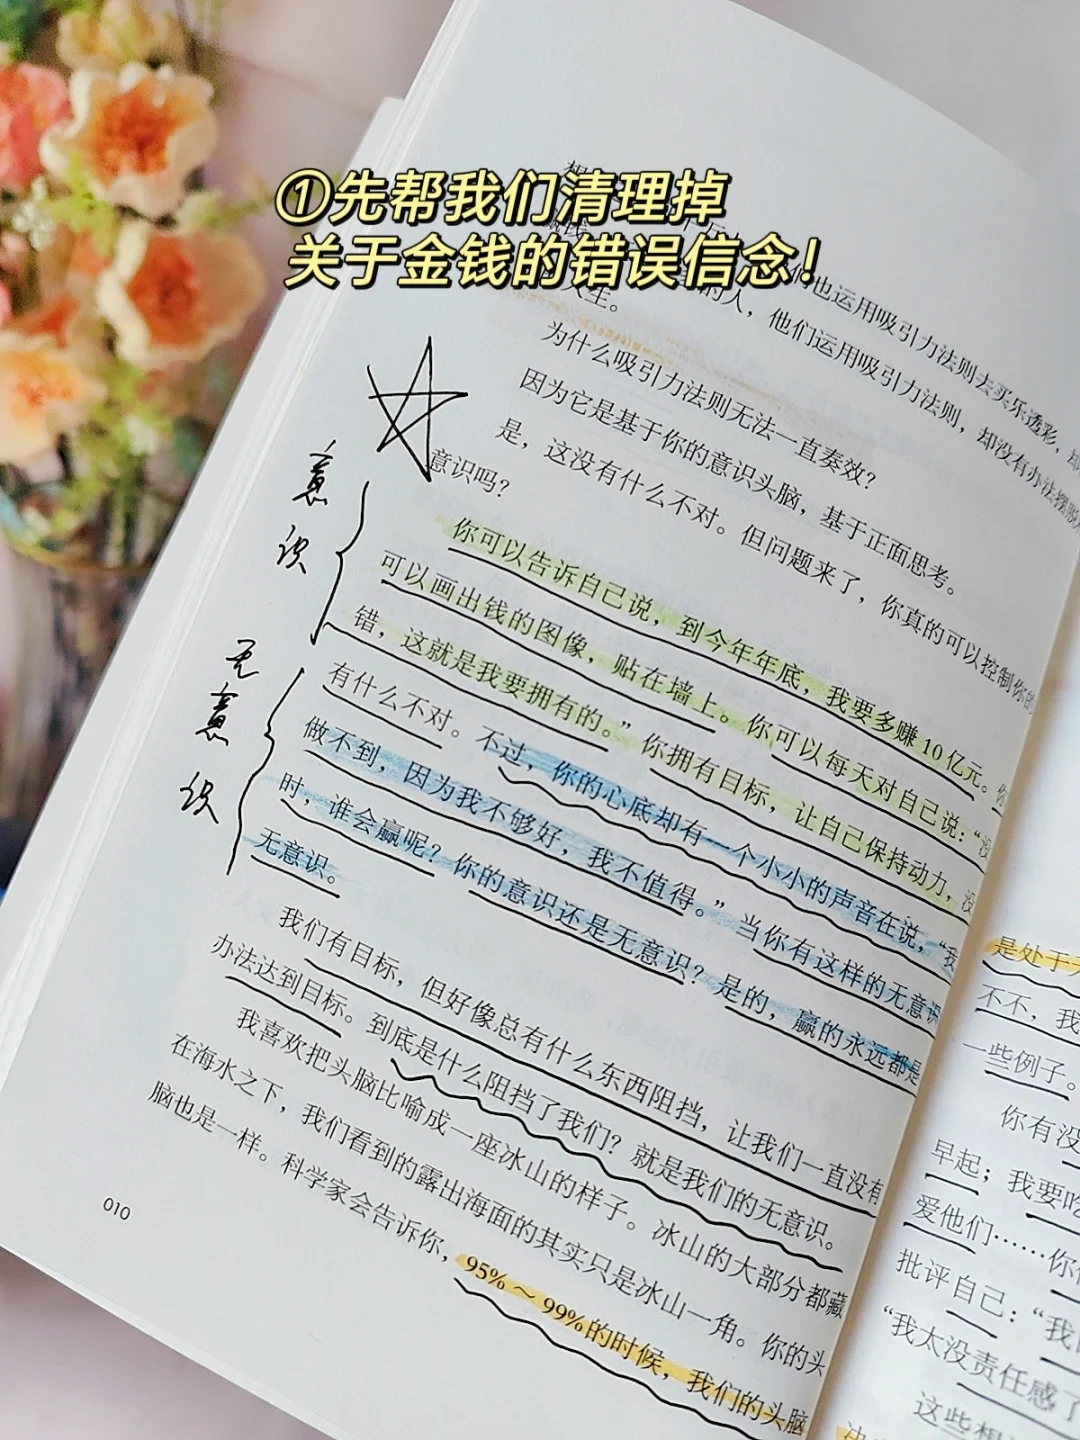 ①先帮我们清理掉
关于金钱的错误信念！
们也运用吸引力法则去买乐透彩，却
的人，他们运用吸引力法则，却没有办法摆脱
人生。
为什么吸引力法则无法一直奏效？
因为它是基于你的意识头脑，基于正面思考。
是，这没有什么不对。但问题来了，你真的可以控制你的
意识吗？
你可以告诉自己说，到今年年底，我要多赚10亿元。你
可以画出钱的图像，贴在墙上。你可以每天对自己说：“没
错，这就是我要拥有的。”你拥有目标，让自己保持动力，没
有什么不对。不过，你的心底却有一个小小的声音在说，“我
做不到，因为我不够好，我不值得。”当你有这样的无意识
时，谁会赢呢？你的意识还是无意识？是的，赢的永远都是
无意识。
我们有目标，但好像总有什么东西阻挡，让我们一直没有
办法达到目标。到底是什么阻挡了我们？就是我们的无意识。
我喜欢把头脑比喻成一座冰山的样子。冰山的大部分都藏
在海水之下，我们看到的露出海面的其实只是冰山一角。你的头
脑也是一样。科学家会告诉你，95%～99%的时候，我们的头脑
010
意识
无意识
是处于
不不，我
一些例子。
你有没
早起；我要吃
爱他们……你
批评自己：“我
“我太没责任感了
这些想